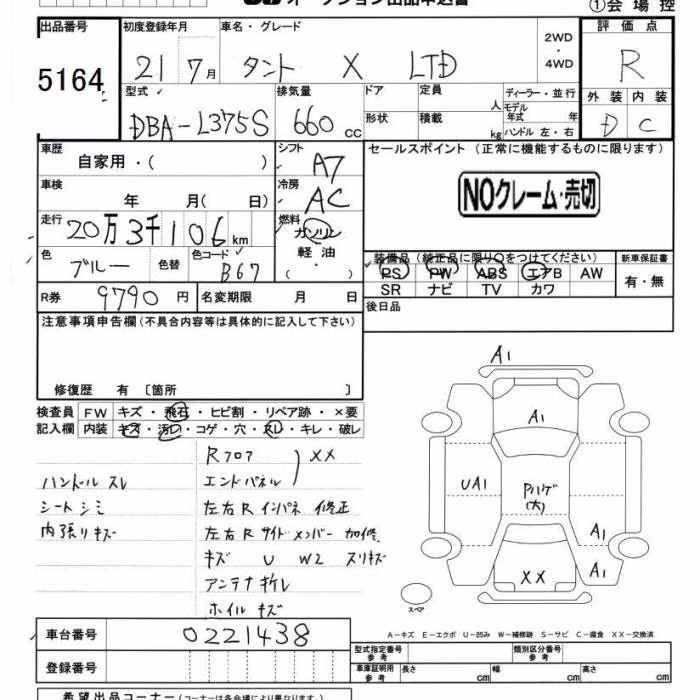 オークション出品申込書
①会場控
出品番号
5164
初度登録年月
21 7月
車名・グレード
タント X LTD
2WD
・
4WD
評価点
R
型式
DBA-L375S
排気量
660cc
ドア
定員
人
ディーラー・並行
形状
積載
kg
モデル年式 年
ハンドル 左・右
外装
内装
D
C
車歴
自家用・( )
シフト
A7
セールスポイント (正常に機能するものに限ります)
NOクレーム・売切
車検
年 月( 日)
冷房
AC
走行
20万3千106km
燃料
ガソリン
軽油
( ・ )
色
ブルー
色替
色コード
B67
装備品(純正品に限り○をつけてください)
新車保証書
PS PW ABS エアB AW
SR ナビ TV カワ
有・無
R券
9790円
名変期限 月 日
後日品
注意事項申告欄(不具合内容等は具体的に記入して下さい)
修復歴 有 〔箇所 〕
検査員
記入欄
FW キズ・飛石・ヒビ割・リペア跡・×要
内装 キズ・汚レ・コゲ・穴・スレ・キレ・破レ
ハンドル スレ
シート シミ
内張リ キズ
Rフロア
エンドパネル
XX
左右R インパネ 修正
左右R サイドメンバー 加修
キズ U W2 スリキズ
アンテナ 折レ
ホイル キズ
A1
A1
UA1
Pハゲ
(大)
A1
A1
XX
スペア
A-キズ E-エクボ U-凹み W-補修跡 S-サビ C-腐食 XX-交換済
車台番号
0221438
登録番号
型式指定番号
参考
類別区分番号
参考
車庫証明用
参考
長さ cm
幅 cm
高さ cm
希望出品コーナー(コーナーは各会場により異なります)